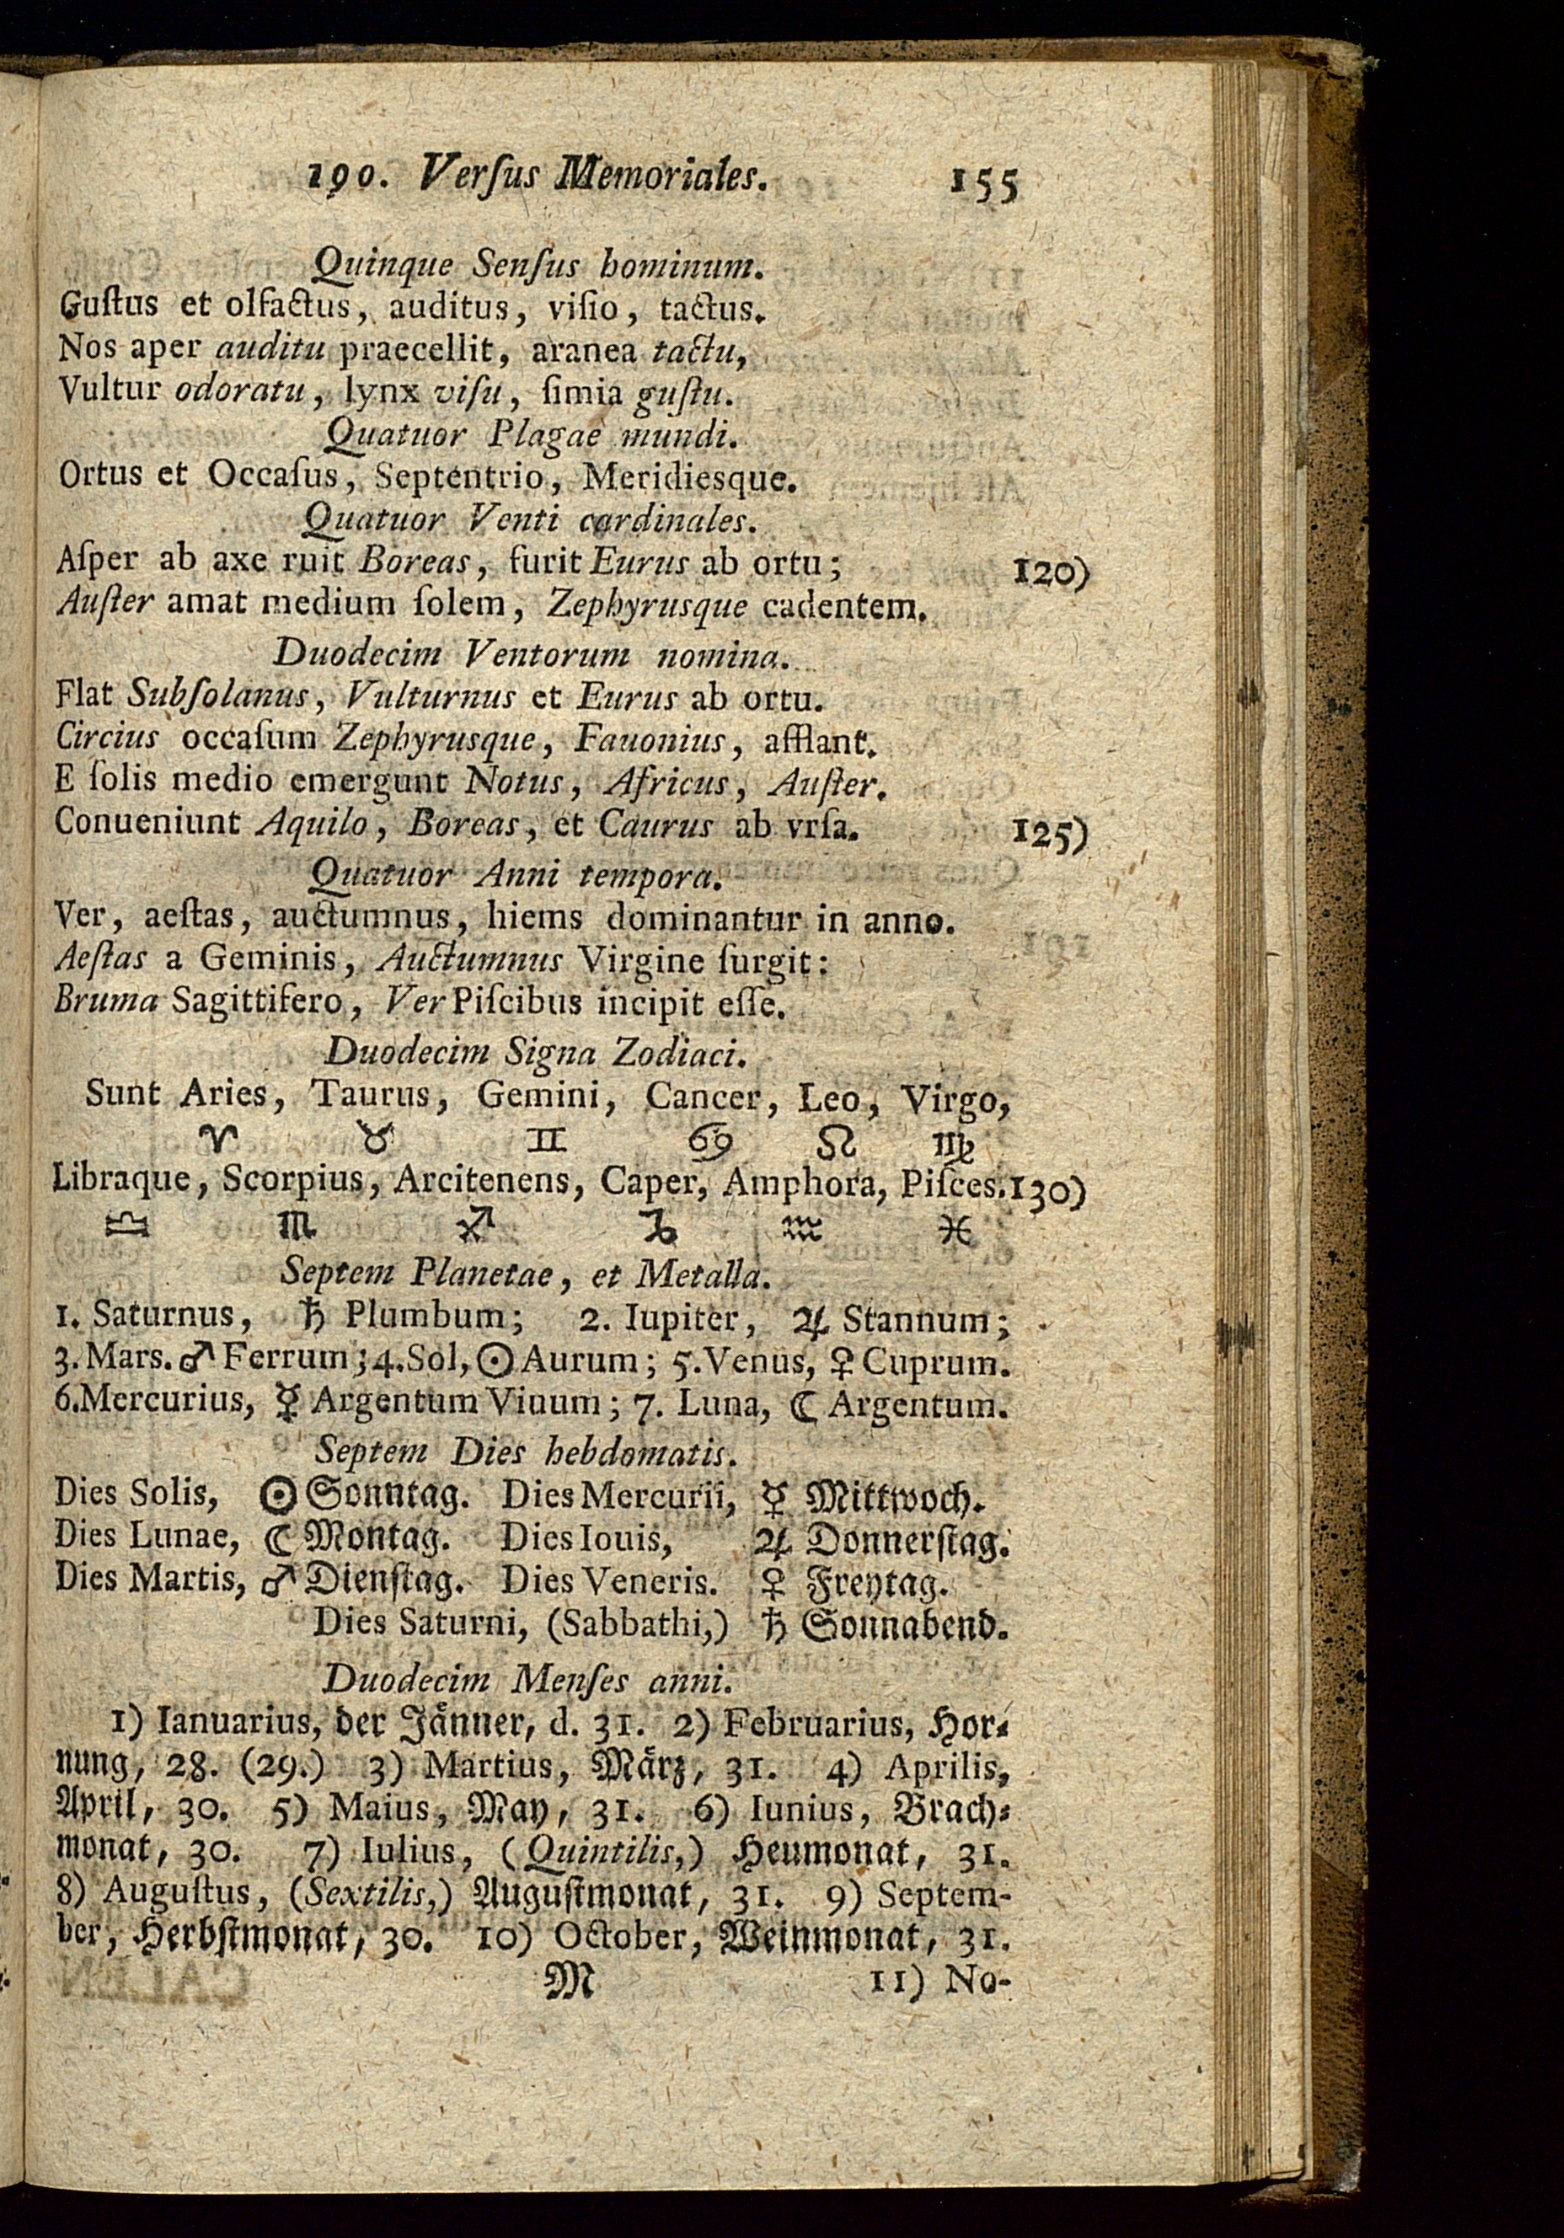 190. Verſus Memoriales. 155
Quinque Senſus hominum.
Guſtus et olfactus, auditus, viſio, tactus.
Nos aper auditu praecellit, aranea tactu,
Vultur odoratu, lynx viſu, ſimia guſtu.
Quatuor Plagae mundi.
Ortus et Occaſus, Septentrio, Meridiesque.
Quatuor Venti cardinales.
Aſper ab axe ruit Boreas, furit Eurus ab ortu; 120)
Auſter amat medium ſolem, Zephyrusque cadentem.
Duodecim Ventorum nomina.
Flat Subſolanus, Vulturnus et Eurus ab ortu.
Circius occaſum Zephyrusque, Fauonius, afflant.
E ſolis medio emergunt Notus, Africus, Auſter.
Conueniunt Aquilo, Boreas, et Caurus ab vrſa. 125)
Quatuor Anni tempora.
Ver, aeſtas, auctumnus, hiems dominantur in anno.
Aeſtas a Geminis, Auctumnus Virgine ſurgit:
Bruma Sagittifero, Ver Piſcibus incipit eſſe.
Duodecim Signa Zodiaci.
Sunt Aries, Taurus, Gemini, Cancer, Leo, Virgo,
♈ ♉ ♊ ♋ ♌ ♍
Libraque, Scorpius, Arcitenens, Caper, Amphora, Piſces. 130)
♎ ♏ ♐ ♑ ♒ ♓
Septem Planetae, et Metalla.
1. Saturnus, ♄ Plumbum; 2. Iupiter, ♃ Stannum;
3. Mars. ♂ Ferrum; 4. Sol, ☉ Aurum; 5. Venus, ♀ Cuprum.
6. Mercurius, ☿ Argentum Viuum; 7. Luna, ☾ Argentum.
Septem Dies hebdomatis.
Dies Solis, ☉ Sonntag. Dies Mercurii, ☿ Mittwoch.
Dies Lunae, ☾ Montag. Dies Iouis, ♃ Donnerſtag.
Dies Martis, ♂ Dienſtag. Dies Veneris. ♀ Freytag.
Dies Saturni, (Sabbathi,) ♄ Sonnabend.
Duodecim Menſes anni.
1) Ianuarius, der Jänner, d. 31. 2) Februarius, Hor-
nung, 28. (29.) 3) Martius, März, 31. 4) Aprilis,
April, 30. 5) Maius, May, 31. 6) Iunius, Brach-
monat, 30. 7) Iulius, (Quintilis,) Heumonat, 31.
8) Auguſtus, (Sextilis,) Auguſtmonat, 31. 9) Septem-
ber, Herbſtmonat, 30. 10) October, Weinmonat, 31.
M 11) No-